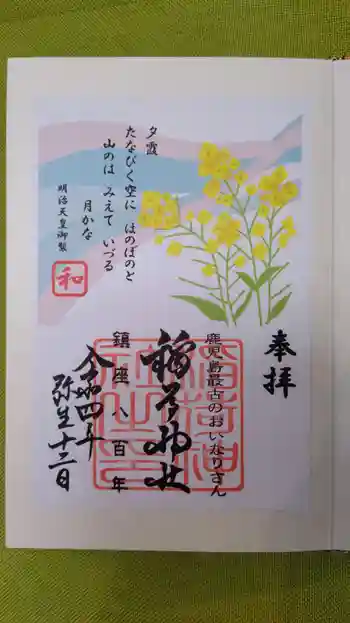 夕霞
たなびく空に ほのぼのと
山のは みえて いづる
月かな
明治天皇御製
和
奉拝
鹿児島最古のおいなりさん
稲荷神社
鎮座八百年
令和四年
弥生十二日